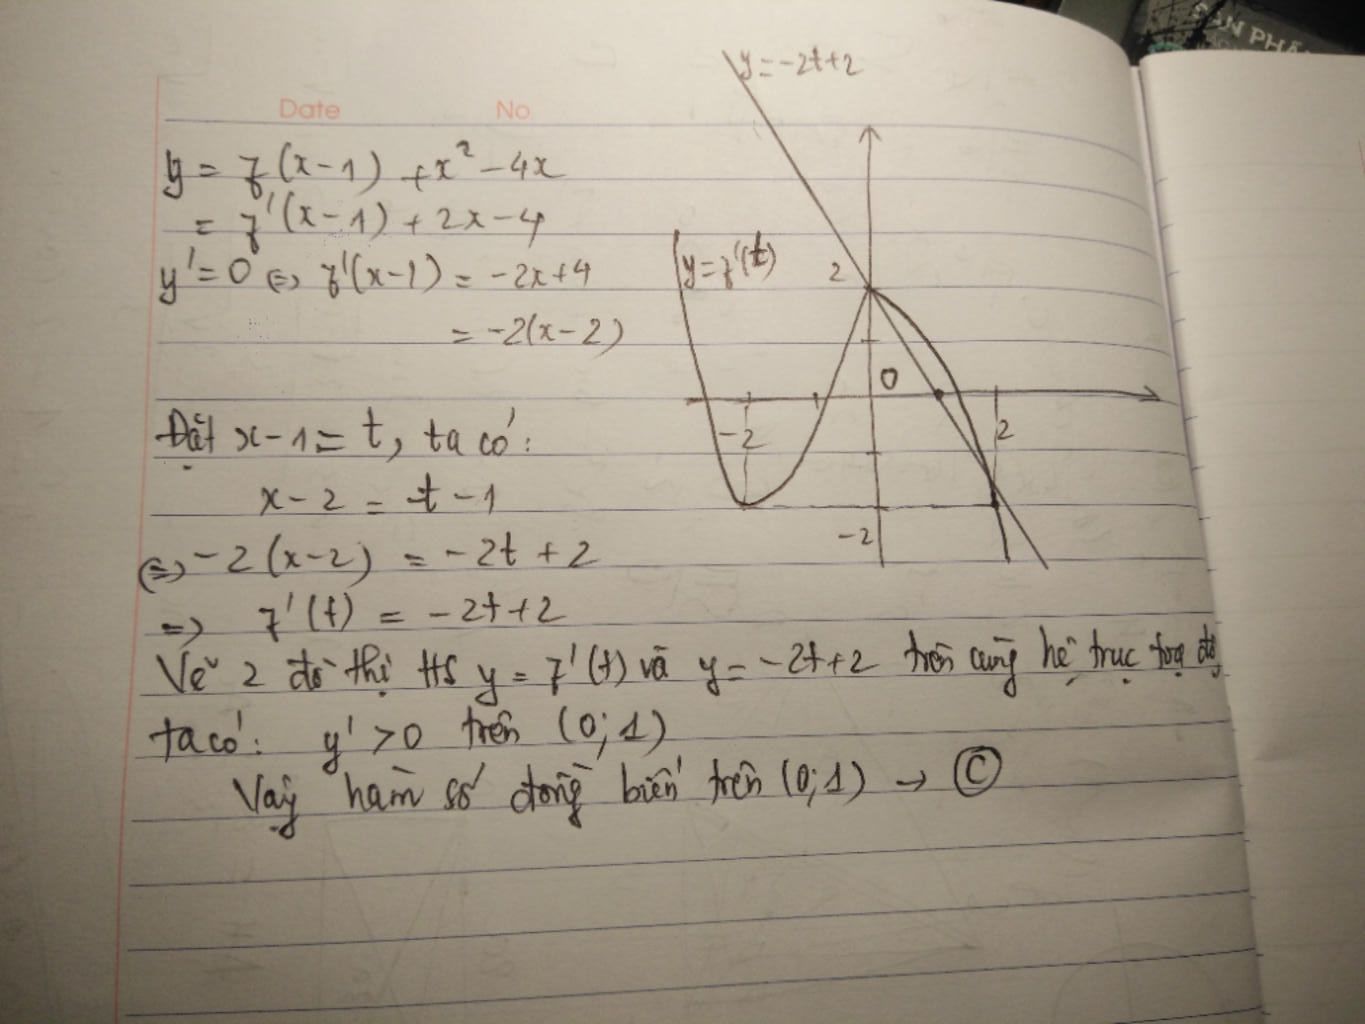 SẢN PHẨ
Date No
y = f(x-1) + x² - 4x
= f'(x-1) + 2x - 4
y' = 0 ⇔ f'(x-1) = -2x+4
= -2(x-2)
Đặt x-1 = t, ta có:
x-2 = t-1
⇔ -2(x-2) = -2t + 2
=> f'(t) = -2t+2
Vẽ 2 đồ thị HS y = f'(t) và y = -2t+2 trên cùng hệ trục toạ độ
ta có: y' > 0 trên (0; 1)
Vậy hàm số đồng biến trên (0; 1) → C
y = -2t+2
y = f'(t)
2
0
-2
2
-2